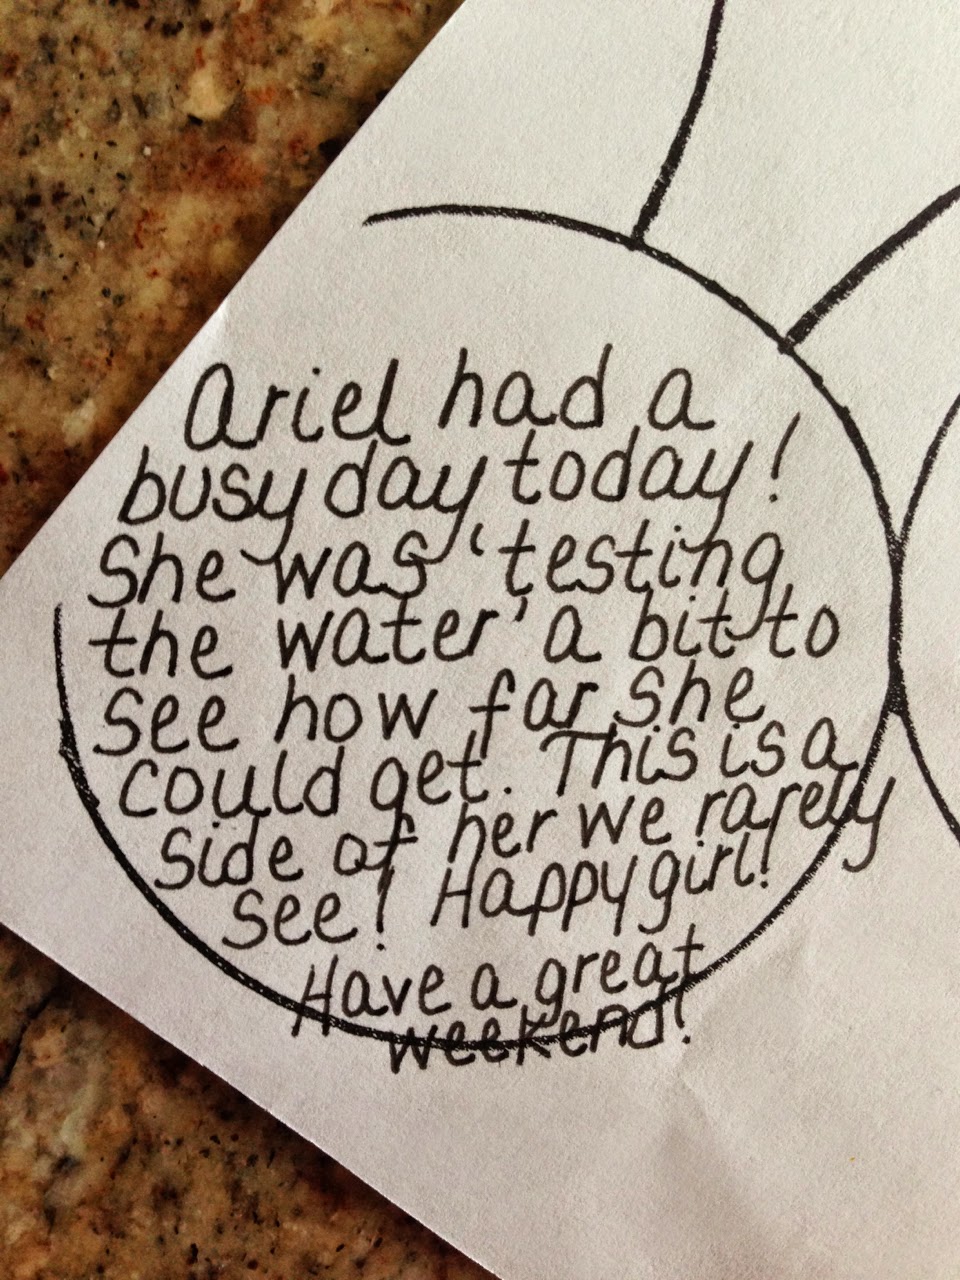 Ariel had a
busy day today!
She was 'testing
the water' a bit to
see how far she
could get. This is a
side of her we rarely
see! Happy girl!
Have a great
weekend!